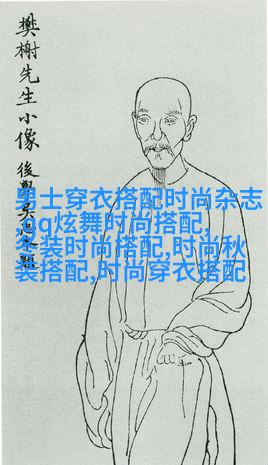 樊榭先生小像
後學吳題
男士穿衣搭配时尚杂志
,qq炫舞时尚搭配,
冬装时尚搭配,时尚秋
装搭配,时尚穿衣搭配